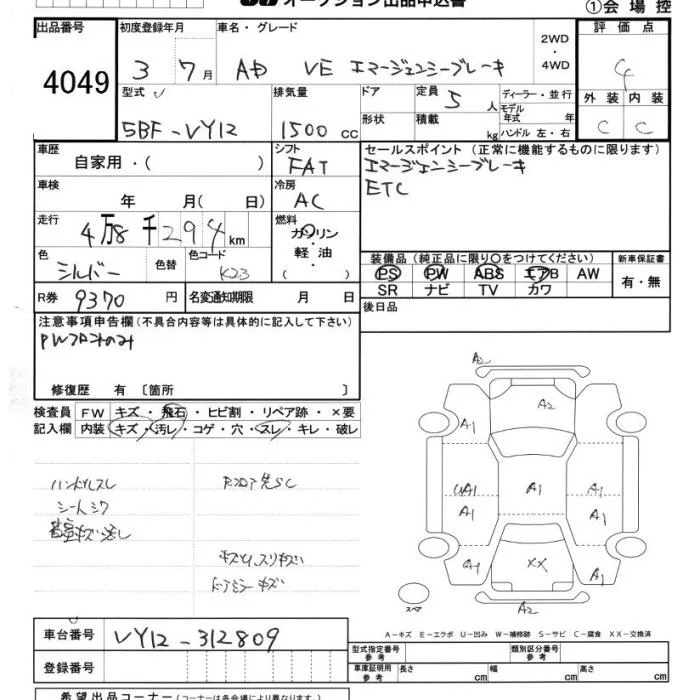 オークション出品申込書
①会場控
出品番号 初度登録年月 車名・グレード 2WD・4WD 評価点
4049
3 7月 AD VE エマージェンシーブレーキ 4
型式 排気量 ドア 定員 5人 ディーラー・並行 外装 内装
モデル年式 年
5BF-VY12 1500cc 形状 積載 kg ハンドル 左・右 C C
車歴 自家用・( ) シフト FAT セールスポイント(正常に機能するものに限ります)
エマージェンシーブレーキ
車検 年 月( 日) 冷房 AC ETC
走行 4万8千294km 燃料 ガソリン・軽油・( )
色 シルバー 色替 色コード K23 装備品(純正品に限り○をつけてください) 新車保証書
PS PW ABS エアB AW 有・無
SR ナビ TV カワ
R券 9370円 名変通知期限 月 日 後日品
注意事項申告欄(不具合内容等は具体的に記入して下さい)
PWフロントのみ
修復歴 有〔箇所 〕
検査員 FW キズ・飛石・ヒビ割・リペア跡・×要
記入欄 内装 キズ・汚レ・コゲ・穴・スレ・キレ・破レ
ハンドルスレ
シートシワ
A2
A2
A1
UA1 A1 A1
A1 A1
A1 XX A1
A2
スペア
A-キズ E-エクボ U-凹み W-補修跡 S-サビ C-腐食 XX-交換済
車台番号 VY12-312809
型式指定番号 参考 類別区分番号 参考
登録番号 車庫証明用 参考 長さ cm 幅 cm 高さ cm
希望出品コーナー(コーナーは各会場により異なります。)